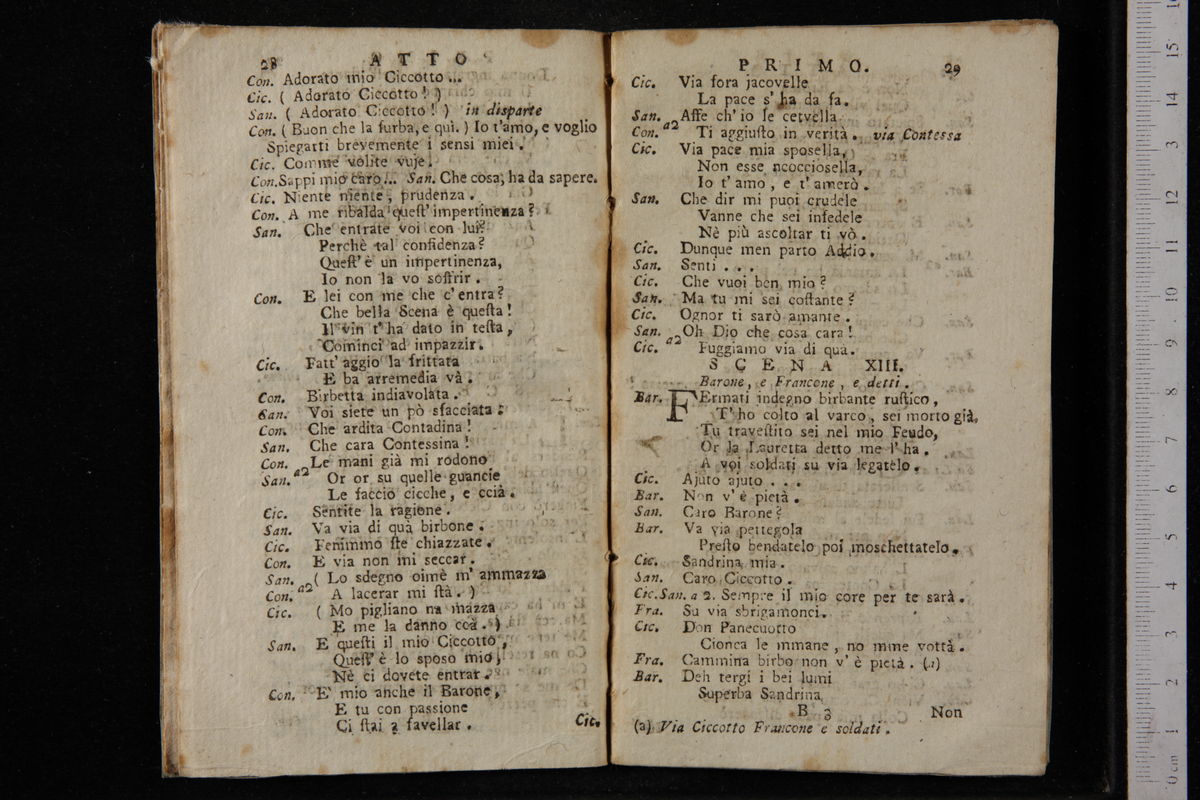 28 ATTO
Con. Adorato mio Ciccotto...
Cic. ( Adorato Ciccotto! )
San. ( Adorato Ciccotto! ) in disparte
Con. ( Buon che la furba, e qui. ) Io t'amo, e voglio
Spiegarti brevemente i sensi miei.
Cic. Comme volite vuje.
Con. Sappi mio caro!.. San. Che cosa, ha da sapere.
Cic. Niente niente, prudenza.
Con. A me ribalda quest' impertinenza?
San. Che entrate voi con lui?
Perchè tal confidenza?
Quest' è un impertinenza,
Io non la vo soffrir.
Con. E lei con me che c'entra?
Che bella Scena è questa!
Il vin t' ha dato in testa,
Cominci ad impazzir.
Cic. Fatt' aggio la frittata
E ba arremedia và.
Con. Birbetta indiavolata.
San. Voi siete un pò sfacciata.
Con. Che ardita Contadina!
San. Che cara Contessina!
Con. Le mani già mi rodono
San. a2 Or or su quelle guancie
Le faccio cicche, e ccià.
Cic. Sentite la ragione.
San. Va via di quà birbone.
Cic. Femimmo ste chiazzate.
Con. E via non mi seccar.
San. ( Lo sdegno oimè m' ammazza
Con. a2 A lacerar mi stà. )
Cic. ( Mo pigliano na mazza
E me la danno ccà. )
San. E questi il mio Ciccotto,
Quest' è lo sposo mio,
Nè ci dovete entrar.
Con. E' mio anche il Barone,
E tu con passione
Ci stai a favellar.
Cic.
PRIMO. 29
Cic. Via fora jacovelle
La pace s' ha da fa.
San. Affe ch' io le cervella
Con. a2 Ti aggiusto in verità. via Contessa
Cic. Via pace mia sposella,
Non esse ncocciosella,
Io t' amo, e t' amerò.
San. Che dir mi puoi crudele
Vanne che sei infedele
Nè più ascoltar ti vò.
Cic. Dunque men parto Addio.
San. Senti...
Cic. Che vuoi ben mio?
San. Ma tu mi sei costante?
Cic. Ognor ti sarò amante.
San. Oh Dio che cosa cara!
Cic. a2 Fuggiamo via di quà.
SCENA XIII.
Barone, e Francone, e detti.
Bar. FErmati indegno birbante rustico,
T' ho colto al varco, sei morto già,
Tu travestito sei nel mio Feudo,
Or la Lauretta detto me l' ha.
A voi soldati su via legatelo.
Cic. Ajuto ajuto...
Bar. Non v' è pietà.
San. Caro Barone?
Bar. Va via pettegola
Presto bendatelo poi moschettatelo.
Cic. Sandrina mia.
San. Caro Ciccotto.
Cic. San. a 2. Sempre il mio core per te sarà.
Fra. Su via sbrigamonci.
Cic. Don Panecuotto
Cionca le mmane, no mme vottà.
Fra. Cammina birbo non v' è pietà. (a)
Bar. Deh tergi i bei lumi
Superba Sandrina
B 3 Non
(a) Via Ciccotto Francone e soldati.
0 cm 1 2 3 4 5 6 7 8 9 10 11 12 13 14 15